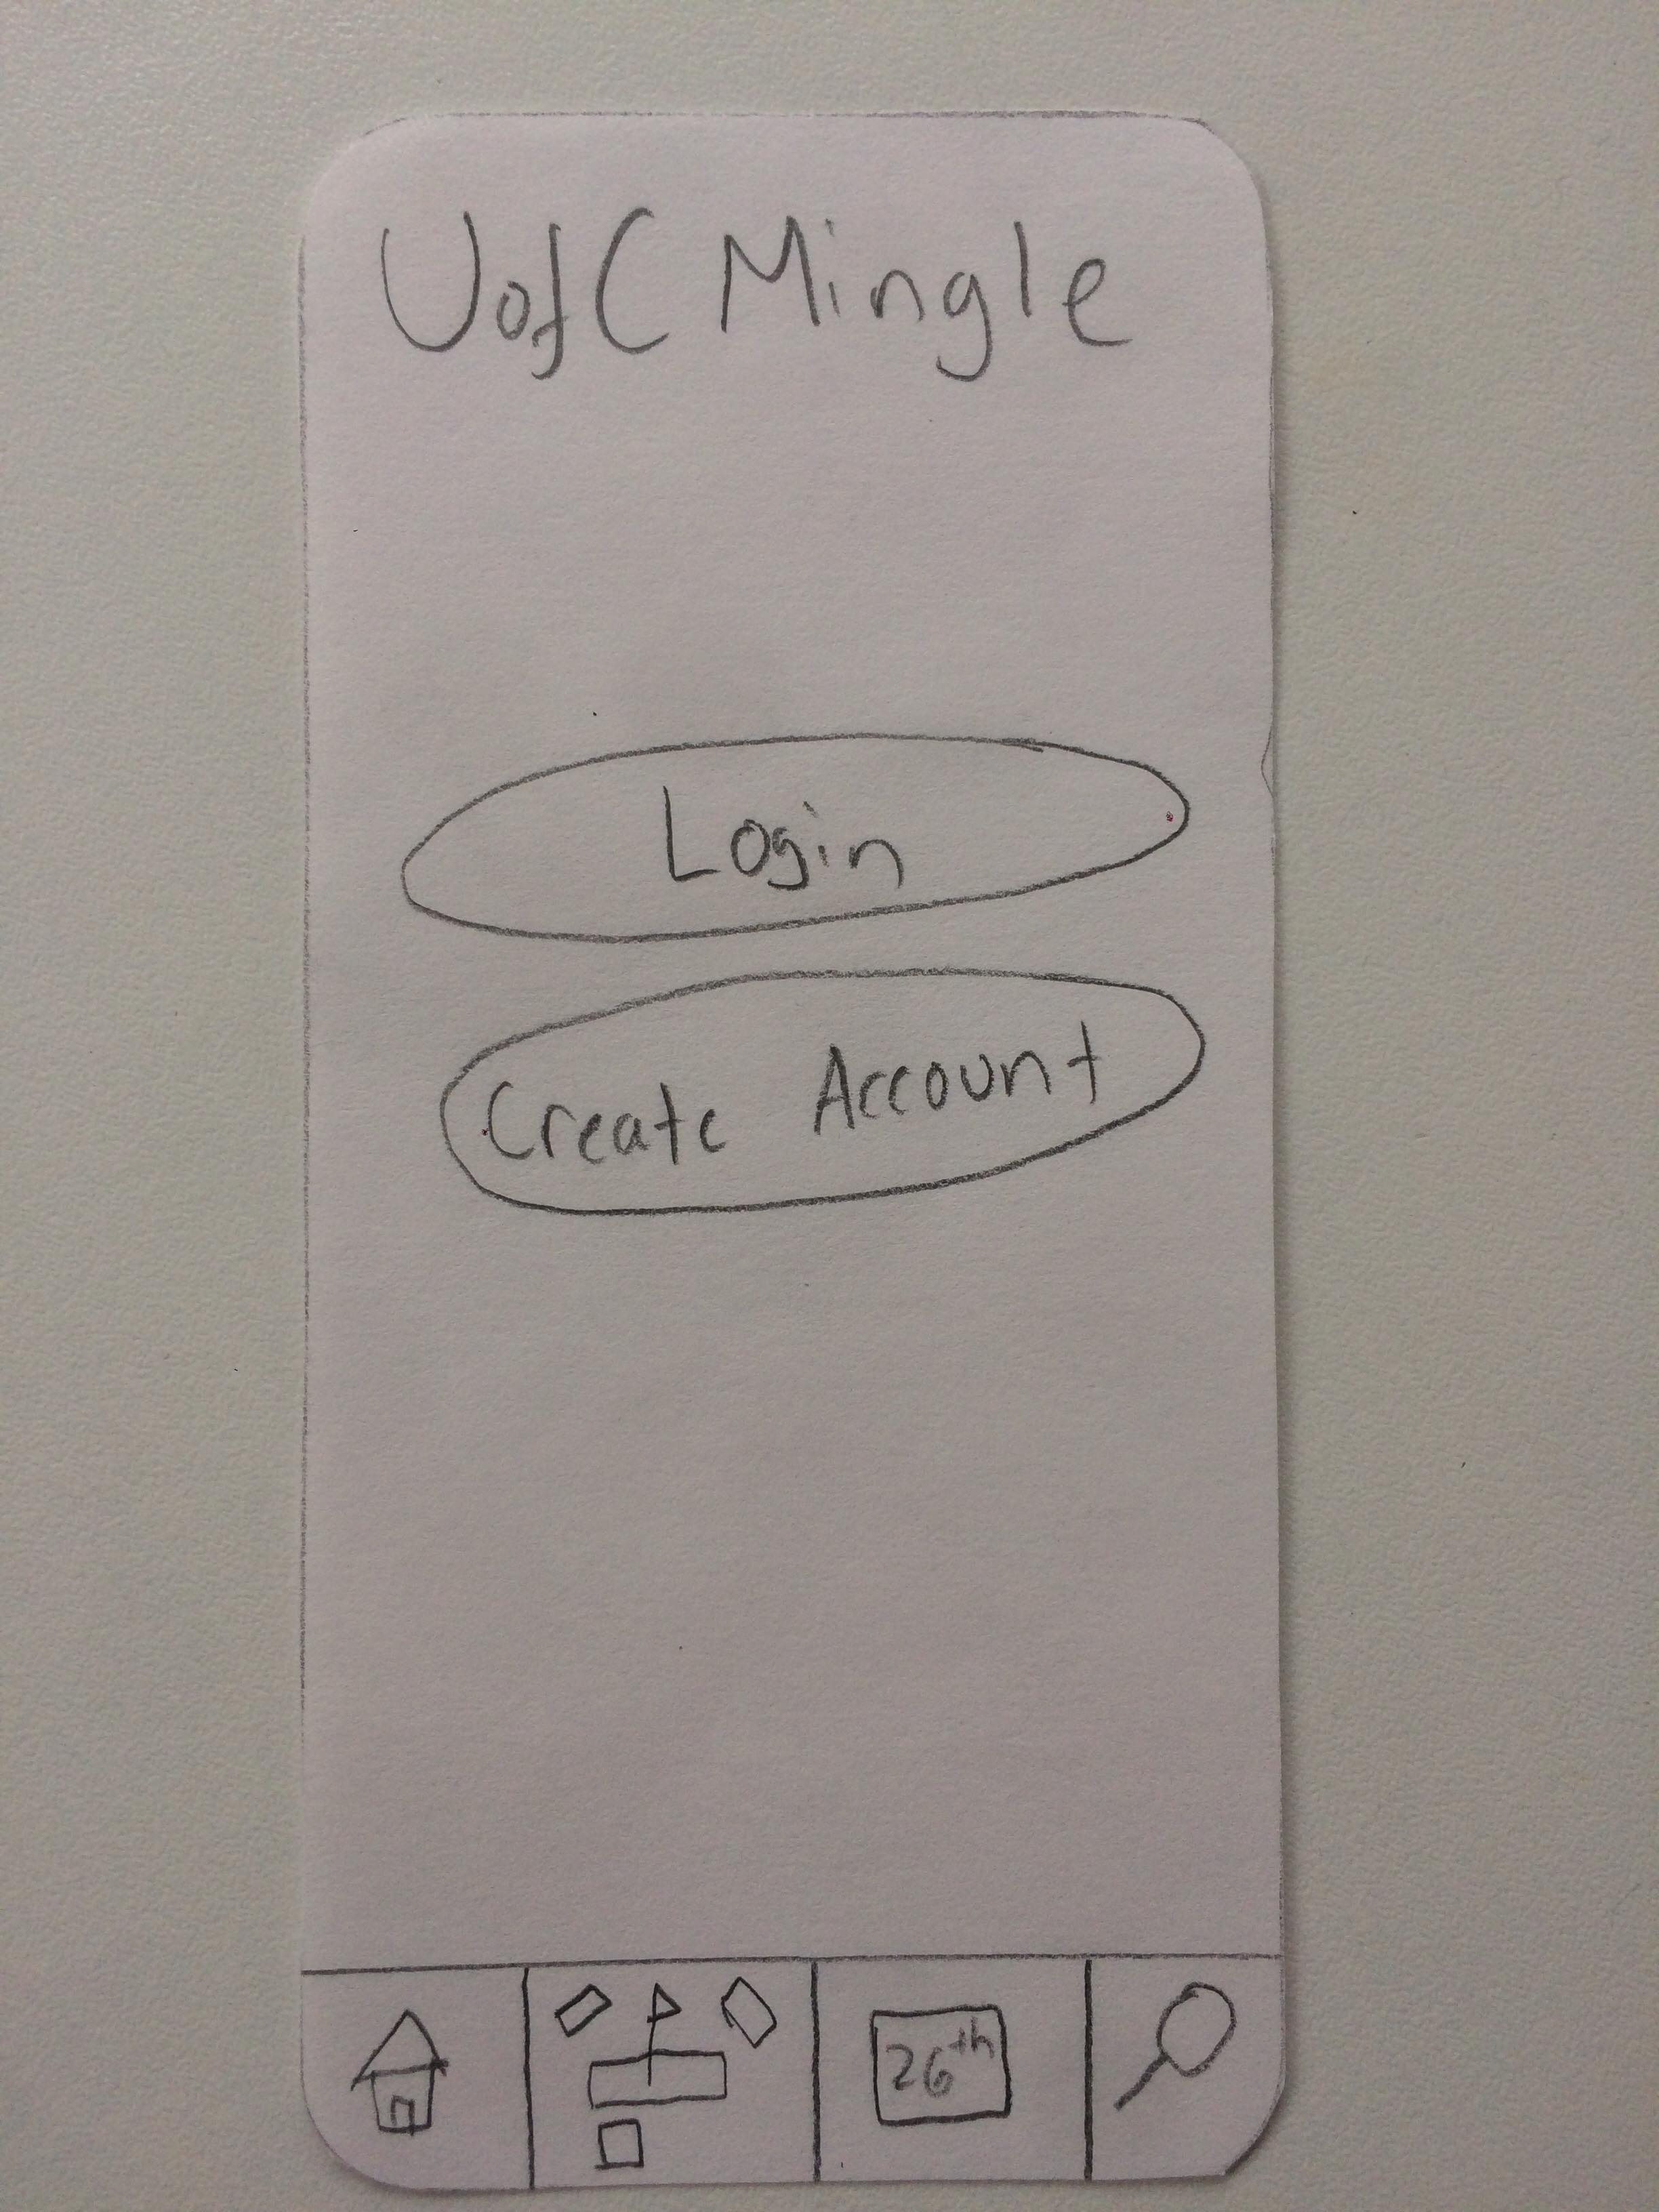 UofC Mingle
Login
Create Account
26th